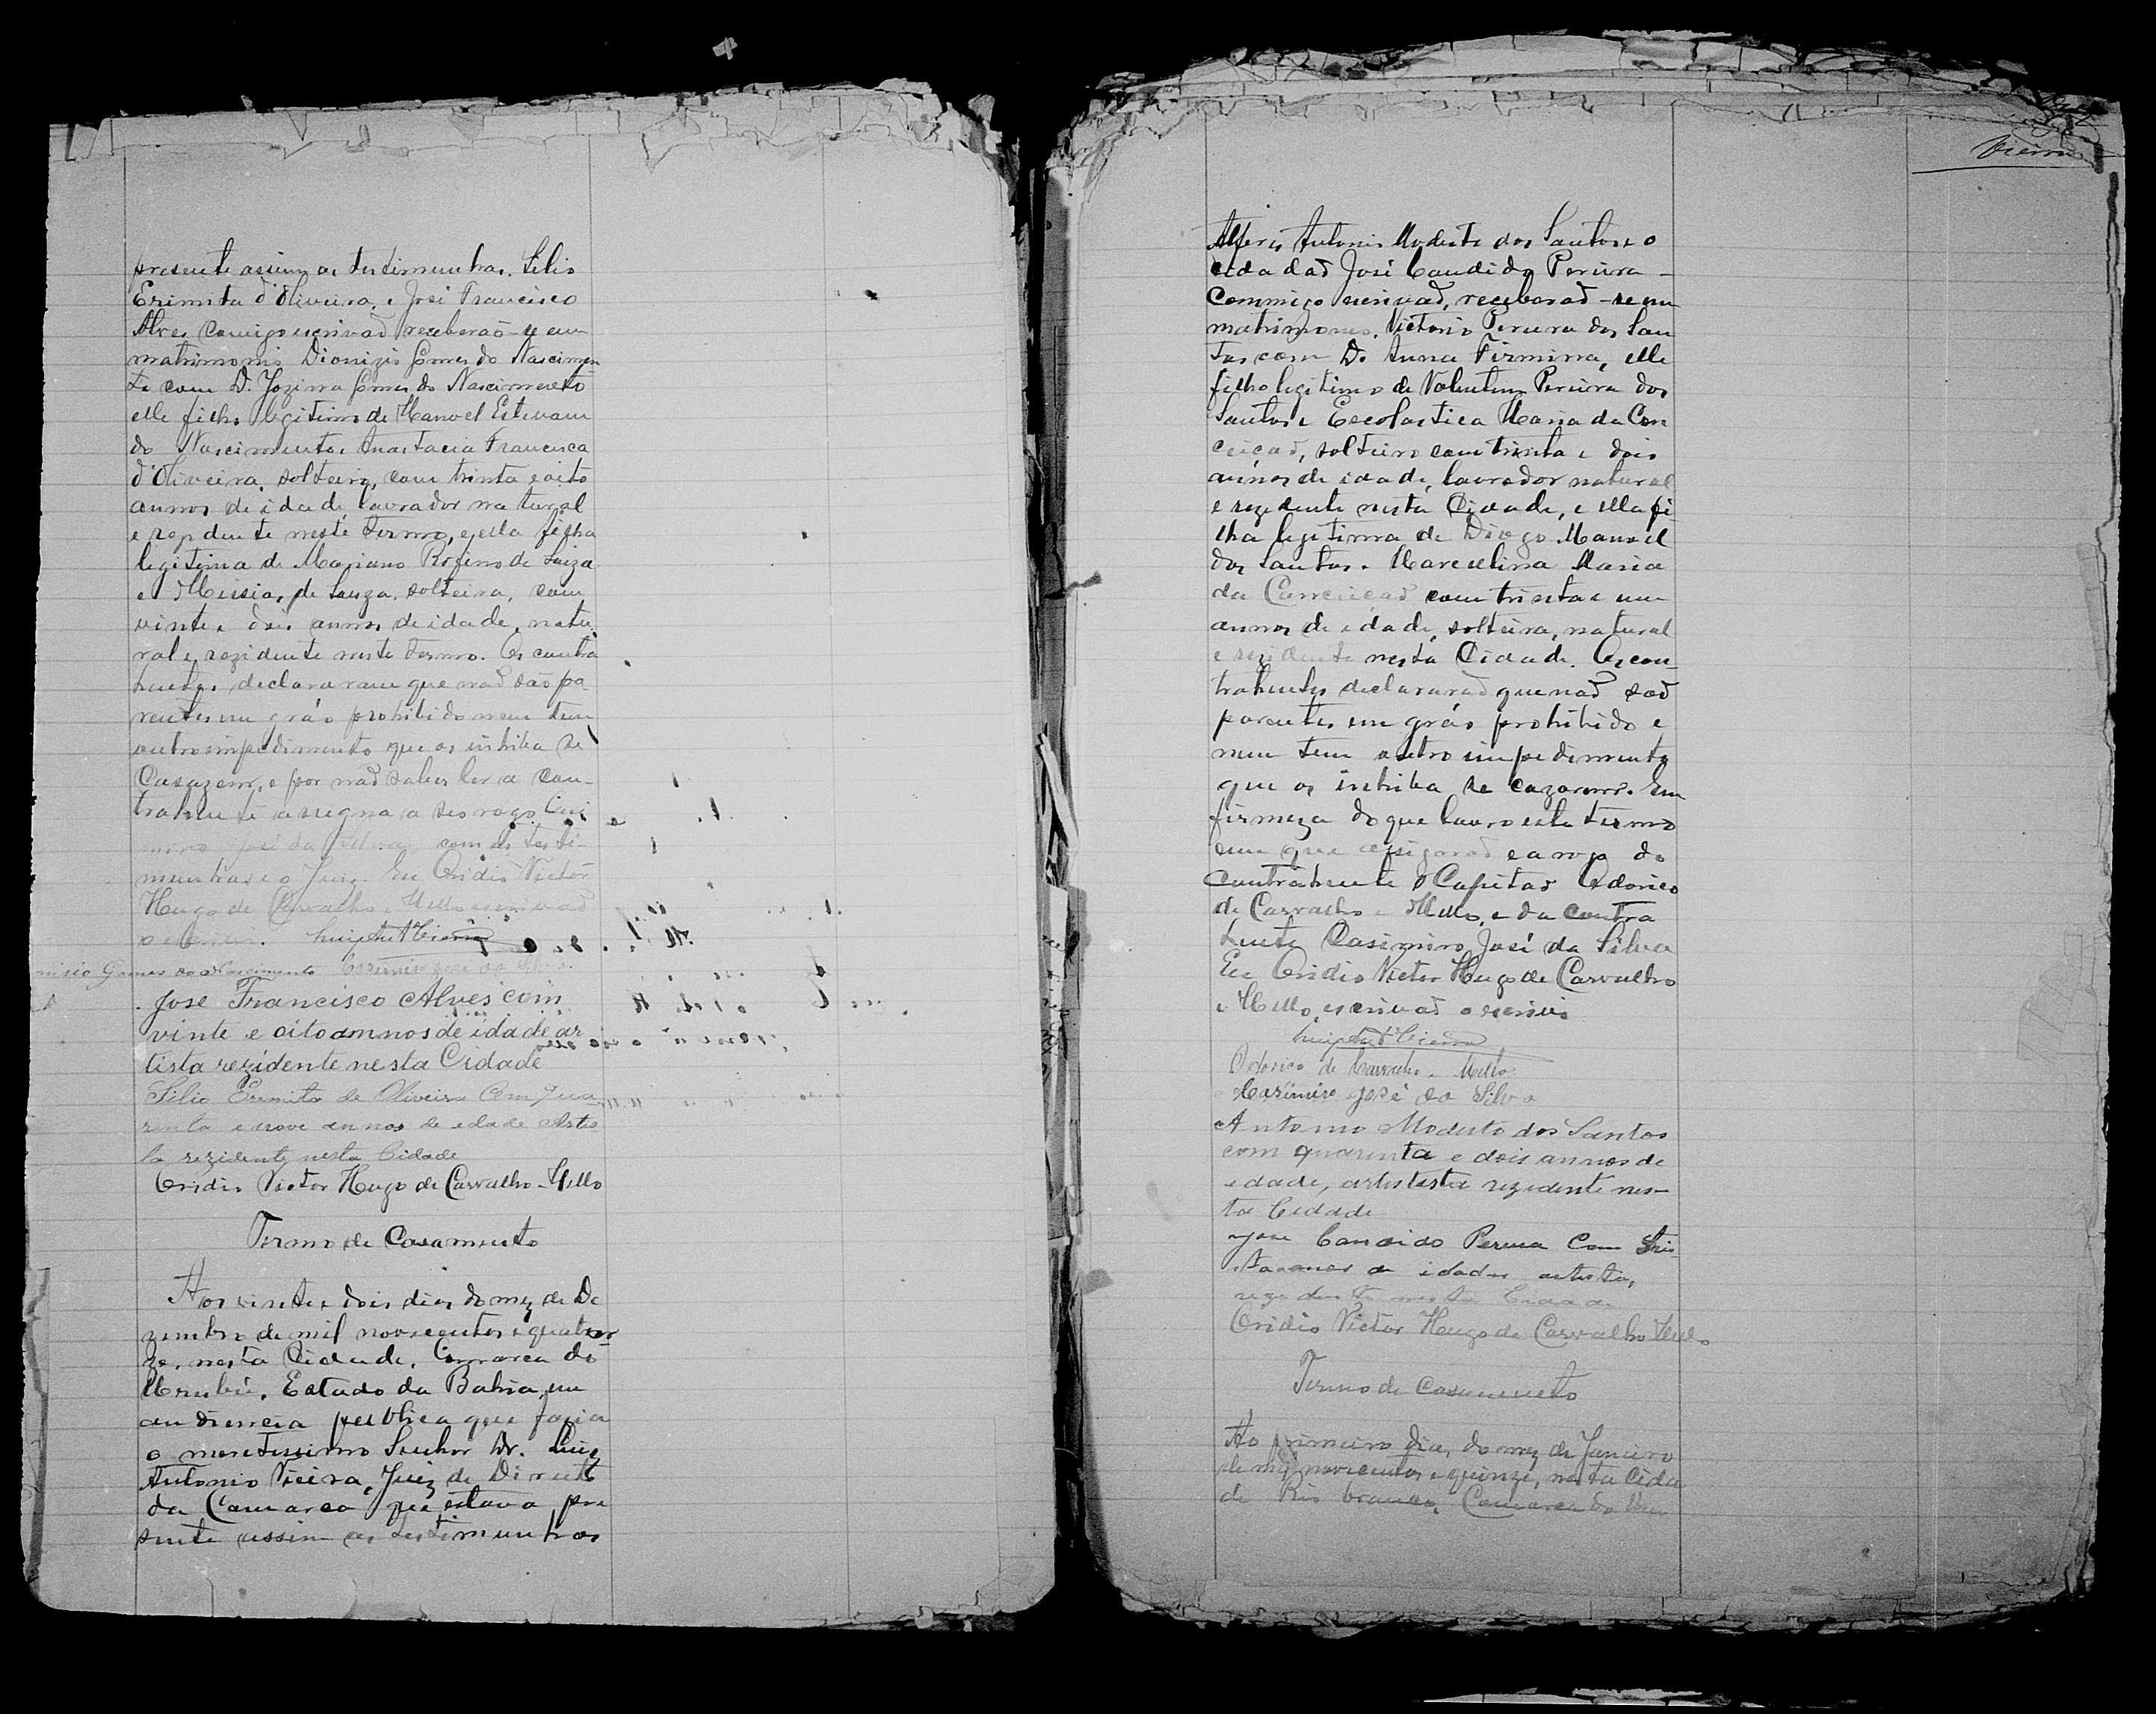 presente assim as testimunhas. Silio
Erimita d'Oliveira, e José Francisco
Alves, comigo escrivaõ receberaõ-se em
matrimonio Dionizio Gomes do Nascimen
to com D. Jozina Gomes do Nascimento
elle filho legitimo de Manoel Estevam
do Nascimento e Anastacia Francisca
d'Oliveira, solteiro, com trinta e oito
annos de idade lavrador natural
e rezidente neste termo, e ella filha
legitima de Mariano Rofino de Souza
e Missias de Souza, solteira, com
vinte e dois annos de idade, natu
ral e rezidente neste termo. Os contra
hentes declararam que naõ são pa-
rentes em gráo prohibido nem tem
outro impedimento que os inhiba se
Casazem, e por naõ saber ler a con-
trahente assigna a seo rogo Casi
miro José da Silva, com as testi-
munhas e o Juiz. Eu Ovidio Victor
Hugo de Carvalho e Mello escrivaõ
o escrevi. Luiz Ant Vieira
nisio Gomes do Nascimento Casimiro José da Silva
José Francisco Alves com
vinte e oito annos de idade ar
tista rezidente nesta Cidade
Silio Eremita de Oliveira Com qua
renta e nove annos de edade Artis
ta rezidente nesta Cidade
Ovidio Victor Hugo de Carvalho Mello
Termo de Casamento
Aos vinte e dois dias do mez de De
zembro de mil novecentos e quator
ze, nesta Cidade, Comarca do
Urubú, Estado da Bahia, em
audiencia publica que fazia
o meretissimo Senhor Dr. Luiz
Antonio Vieira, Juiz de Direito
da Comarca que estava pre
sente assim as testimunhas
Vieira
Alferes Antonio Modesto dos Santos e o
cidadaõ José Candido Pereira
Commigo escrivaõ, receberaõ-se em
matrimonio, Victorio Pereira dos San
tos com D. Anna Firmina, elle
filho legitimo de Valentim Pereira dos
Santos e Escolastica Maria da Con
ceiçaõ, solteiro com trinta e dois
annos de idade, lavrador natural
e rezidente nesta Cidade, e ella fi
lha legitima de Diogo Manoel
dos Santos e Marcelina Maria
da Conceiçaõ com trinta e um
annos de idade, solteira, natural
e rezidente nesta Cidade. Os con
trahentes declararaõ que naõ saõ
parentes em gráo prohibido e
nem tem outro impedimento
que os inhiba se cazarem. Em
firmeza do que lavro este termo
em que assignaõ e a rogo do
contrahente o Capitaõ Odorico
de Carvalho e Mello, e da contra
hente Casimiro José da Silva
Eu Ovidio Victor Hugo de Carvalho
e Mello, escrivaõ o escrevi
Luiz Ant Vieira
Odorico de Carvalho e Mello
Cazimiro José da Silva
Antonio Modesto dos Santos
com quarenta e dois annos de
edade, artistista rezidente nes-
ta Cidade
José Candido Pereira Com trin
ta annos de idade artista,
rezidente nesta Cidade
Ovidio Victor Hugo de Carvalho Mello
Termo de Casamento
Ao primeiro dia, do mez de Janeiro
de mil novecentos e quinze, nesta Cida
de Rio branco, Comarca do Uru